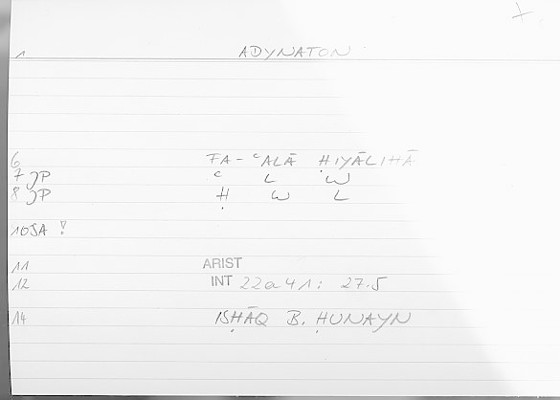 1 ADYNATON
6 FA-ʿALĀ ḤIYĀLIHĀ
7 JP ʿ L W
8 JP Ḥ W L
10 JA !
11 ARIST
12 INT 22a41: 27.5
14 ISḤĀQ B. ḤUNAYN